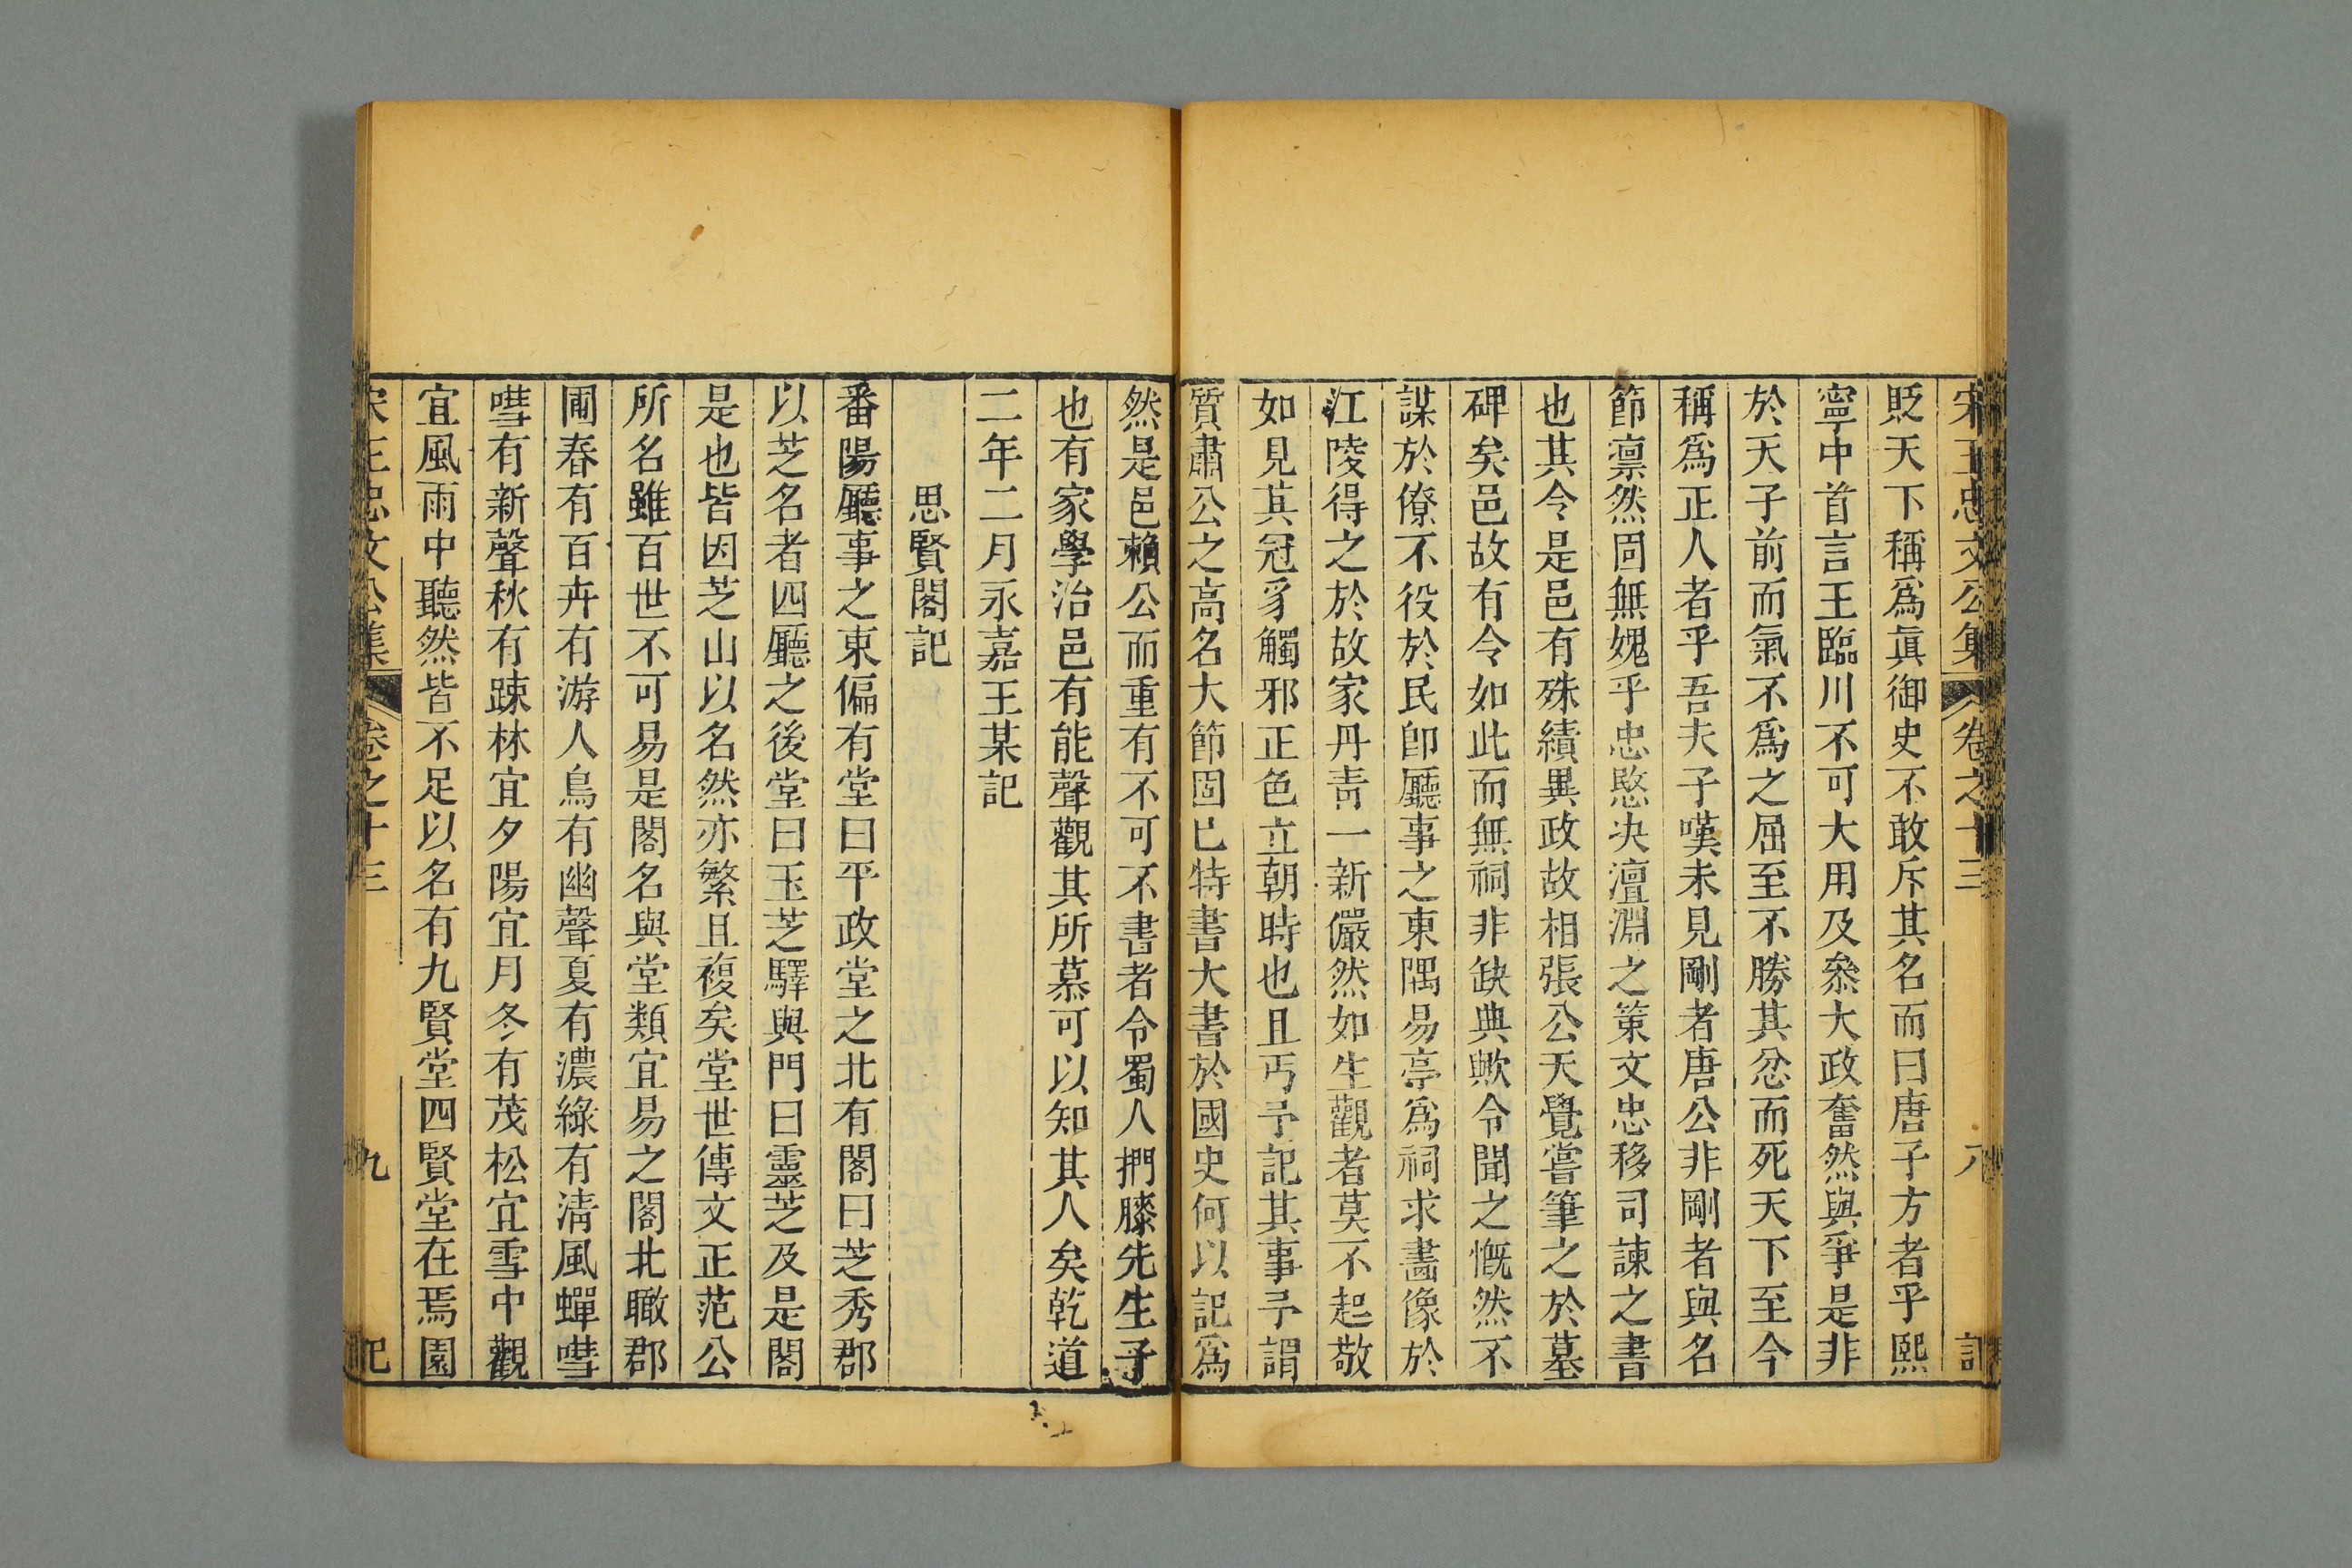 宋王忠文公集 卷之十三 八 記
貶天下稱爲眞御史不敢斥其名而曰唐子方者乎熙
寧中首言王臨川不可大用及叅大政奮然與爭是非
於天子前而氣不爲之屈至不勝其忿而死天下至今
稱爲正人者乎吾夫子嘆未見剛者唐公非剛者與名
節凛然固無媿乎忠愍决澶淵之策文忠移司諫之書
也其令是邑有殊績異政故相張公天覺嘗筆之於墓
碑矣邑故有令如此而無祠非缺典歟令聞之慨然不
謀於僚不役於民卽廳事之東隅易亭爲祠求畫像於
江陵得之於故家丹靑一新儼然如生觀者莫不起敬
如見其冠豸觸邪正色立朝時也且丐予記其事予謂
質肅公之高名大節固已特書大書於國史何以記爲
然是邑賴公而重有不可不書者令蜀人捫膝先生子
也有家學治邑有能聲觀其所慕可以知其人矣乾道
二年二月永嘉王某記
思賢閣記
番陽廳事之東偏有堂曰平政堂之北有閣曰芝秀郡
以芝名者四廳之後堂曰玉芝驛與門曰靈芝及是閣
是也皆因芝山以名然亦繁且複矣堂世傳文正范公
所名雖百世不可易是閣名與堂類宜易之閣北瞰郡
圃春有百卉有游人鳥有幽聲夏有濃綠有淸風蟬嘒
嘒有新聲秋有踈林宜夕陽宜月冬有茂松宜雪中觀
宜風雨中聽然皆不足以名有九賢堂四賢堂在焉園
宋王忠文公集 卷之十三 九 記